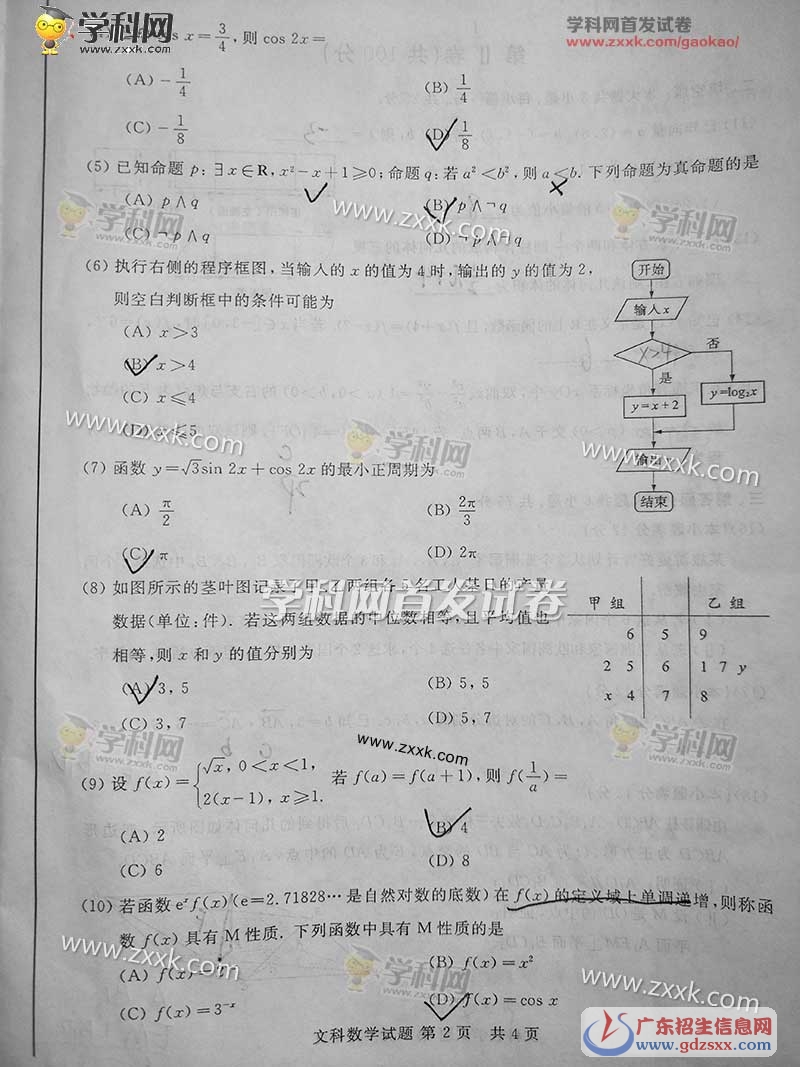 学科网
www.zxxk.com
学科网首发试卷
www.zxxk.com/gaokao/
s x=3/4,则 cos 2x=
(A) -1/4
(B) 1/4
(C) -1/8
(D) 1/8
(5) 已知命题 p: ∃x∈R, x²-x+1≥0; 命题 q: 若 a²<b², 则 a<b. 下列命题为真命题的是
(A) p∧q
(B) p∧¬q
(C) ¬p∧q
(D) ¬p∧¬q
学科网
www.zxxk.com
(6) 执行右侧的程序框图,当输入的 x 的值为 4 时,输出的 y 的值为 2,
则空白判断框中的条件可能为
(A) x>3
(B) x>4
(C) x≤4
(D) x≤5
开始
输入 x
x>4
否
是
y=x+2
y=log₂x
输出 y
结束
www.zxxk.com
学科网
www.zxxk.com
(7) 函数 y=√3sin 2x+cos 2x 的最小正周期为
(A) π/2
(B) 2π/3
(C) π
(D) 2π
(8) 如图所示的茎叶图记录了甲、乙两组各 5 名工人某日的产量
学科网首发试卷
数据(单位:件). 若这两组数据的中位数相等,且平均值也
相等,则 x 和 y 的值分别为
(A) 3, 5
(B) 5, 5
(C) 3, 7
(D) 5, 7
甲 组 乙 组
6 5 9
2 5 6 1 7 y
x 4 7 8
学科网
www.zxxk.com
学科网
(9) 设 f(x)={√x, 0<x<1,
2(x-1), x≥1.
若 f(a)=f(a+1), 则 f(1/a)=
(A) 2
(B) 4
(C) 6
(D) 8
(10) 若函数 eˣf(x)(e=2.71828…是自然对数的底数)在 f(x) 的定义域上单调递增,则称函
数 f(x) 具有 M 性质. 下列函数中具有 M 性质的是
(A) f(x)=
(B) f(x)=x²
(C) f(x)=3⁻ˣ
(D) f(x)=cos x
www.zxxk.com
学科网
www.zxxk.com
文科数学试题 第 2 页 共 4 页
广东招生信息网
www.gdzsxx.com